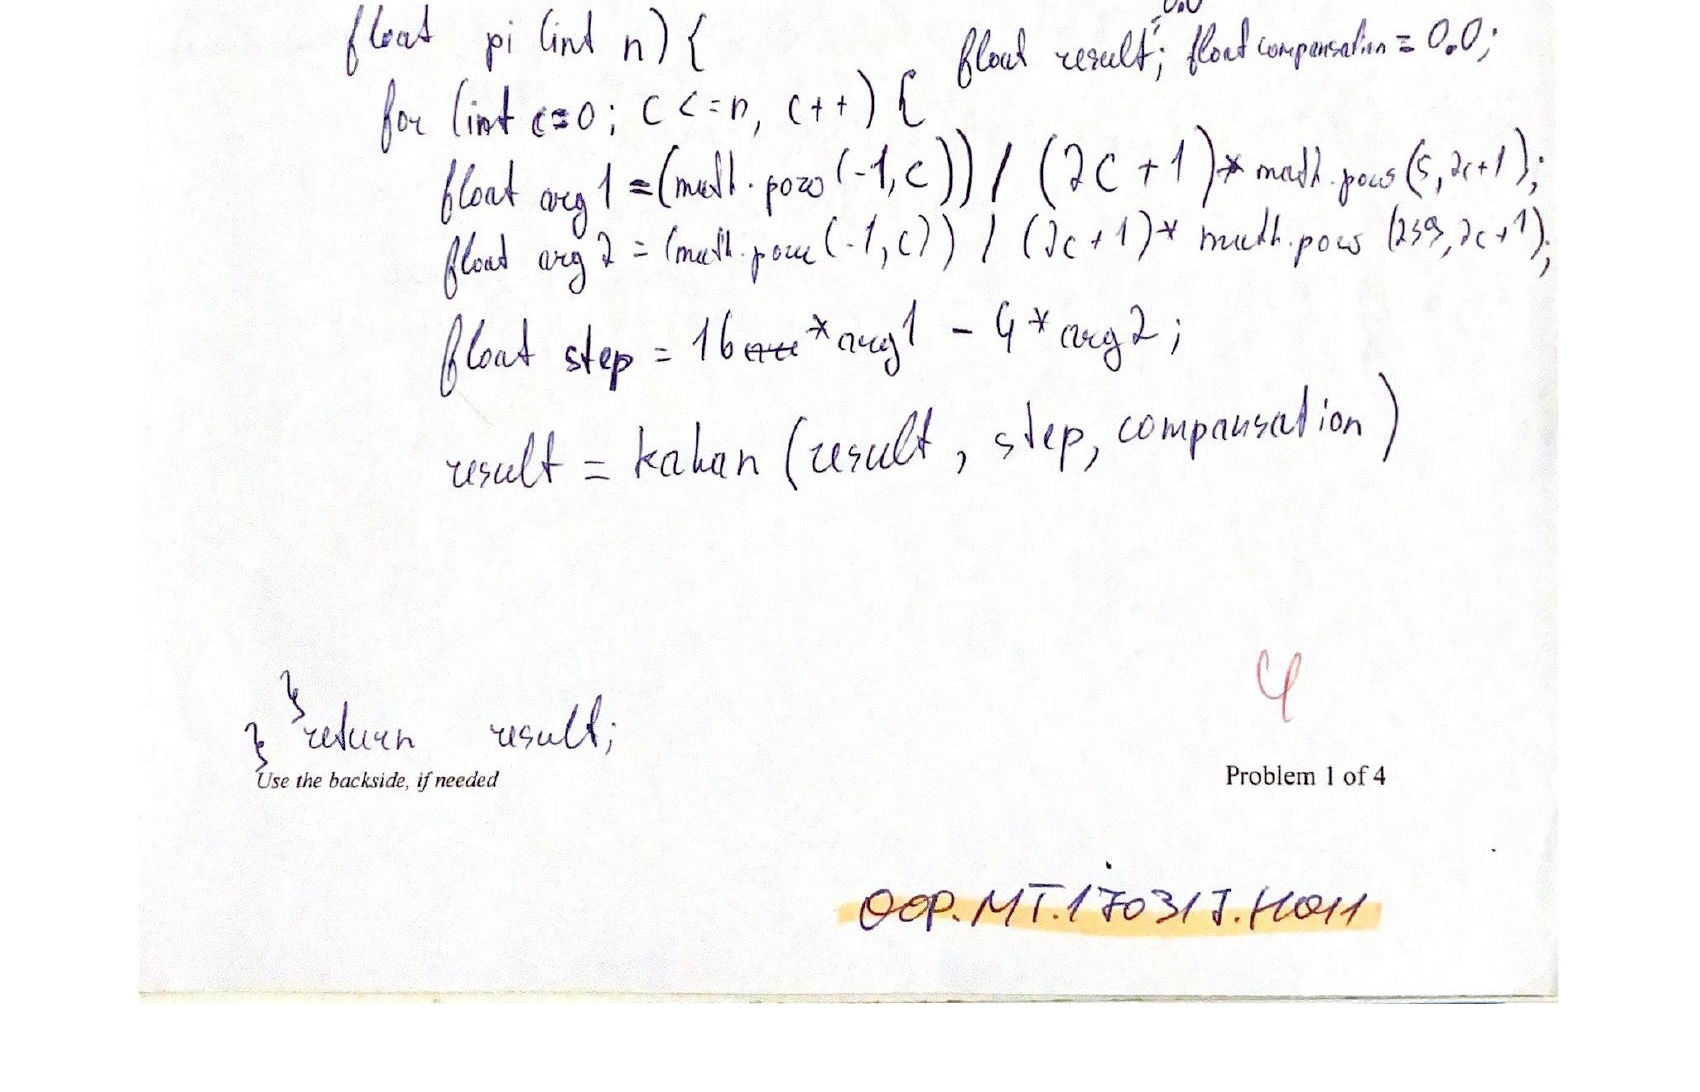 float pi (int n) { float result = 0.0; float compensation = 0.0;
for (int c=0; c <= n, c++) {
float arg1 = (math.pow (-1,c)) / (2c+1)* math.pow (5, 2c+1);
float arg2 = (math.pow (-1,c)) / (2c+1)* math.pow (239, 2c+1);
float step = 16 * arg1 - 4 * arg2;
result = kahan (result, step, compansation)
4
}
} return result;
Use the backside, if needed Problem 1 of 4
OOP.MT.170317.H011